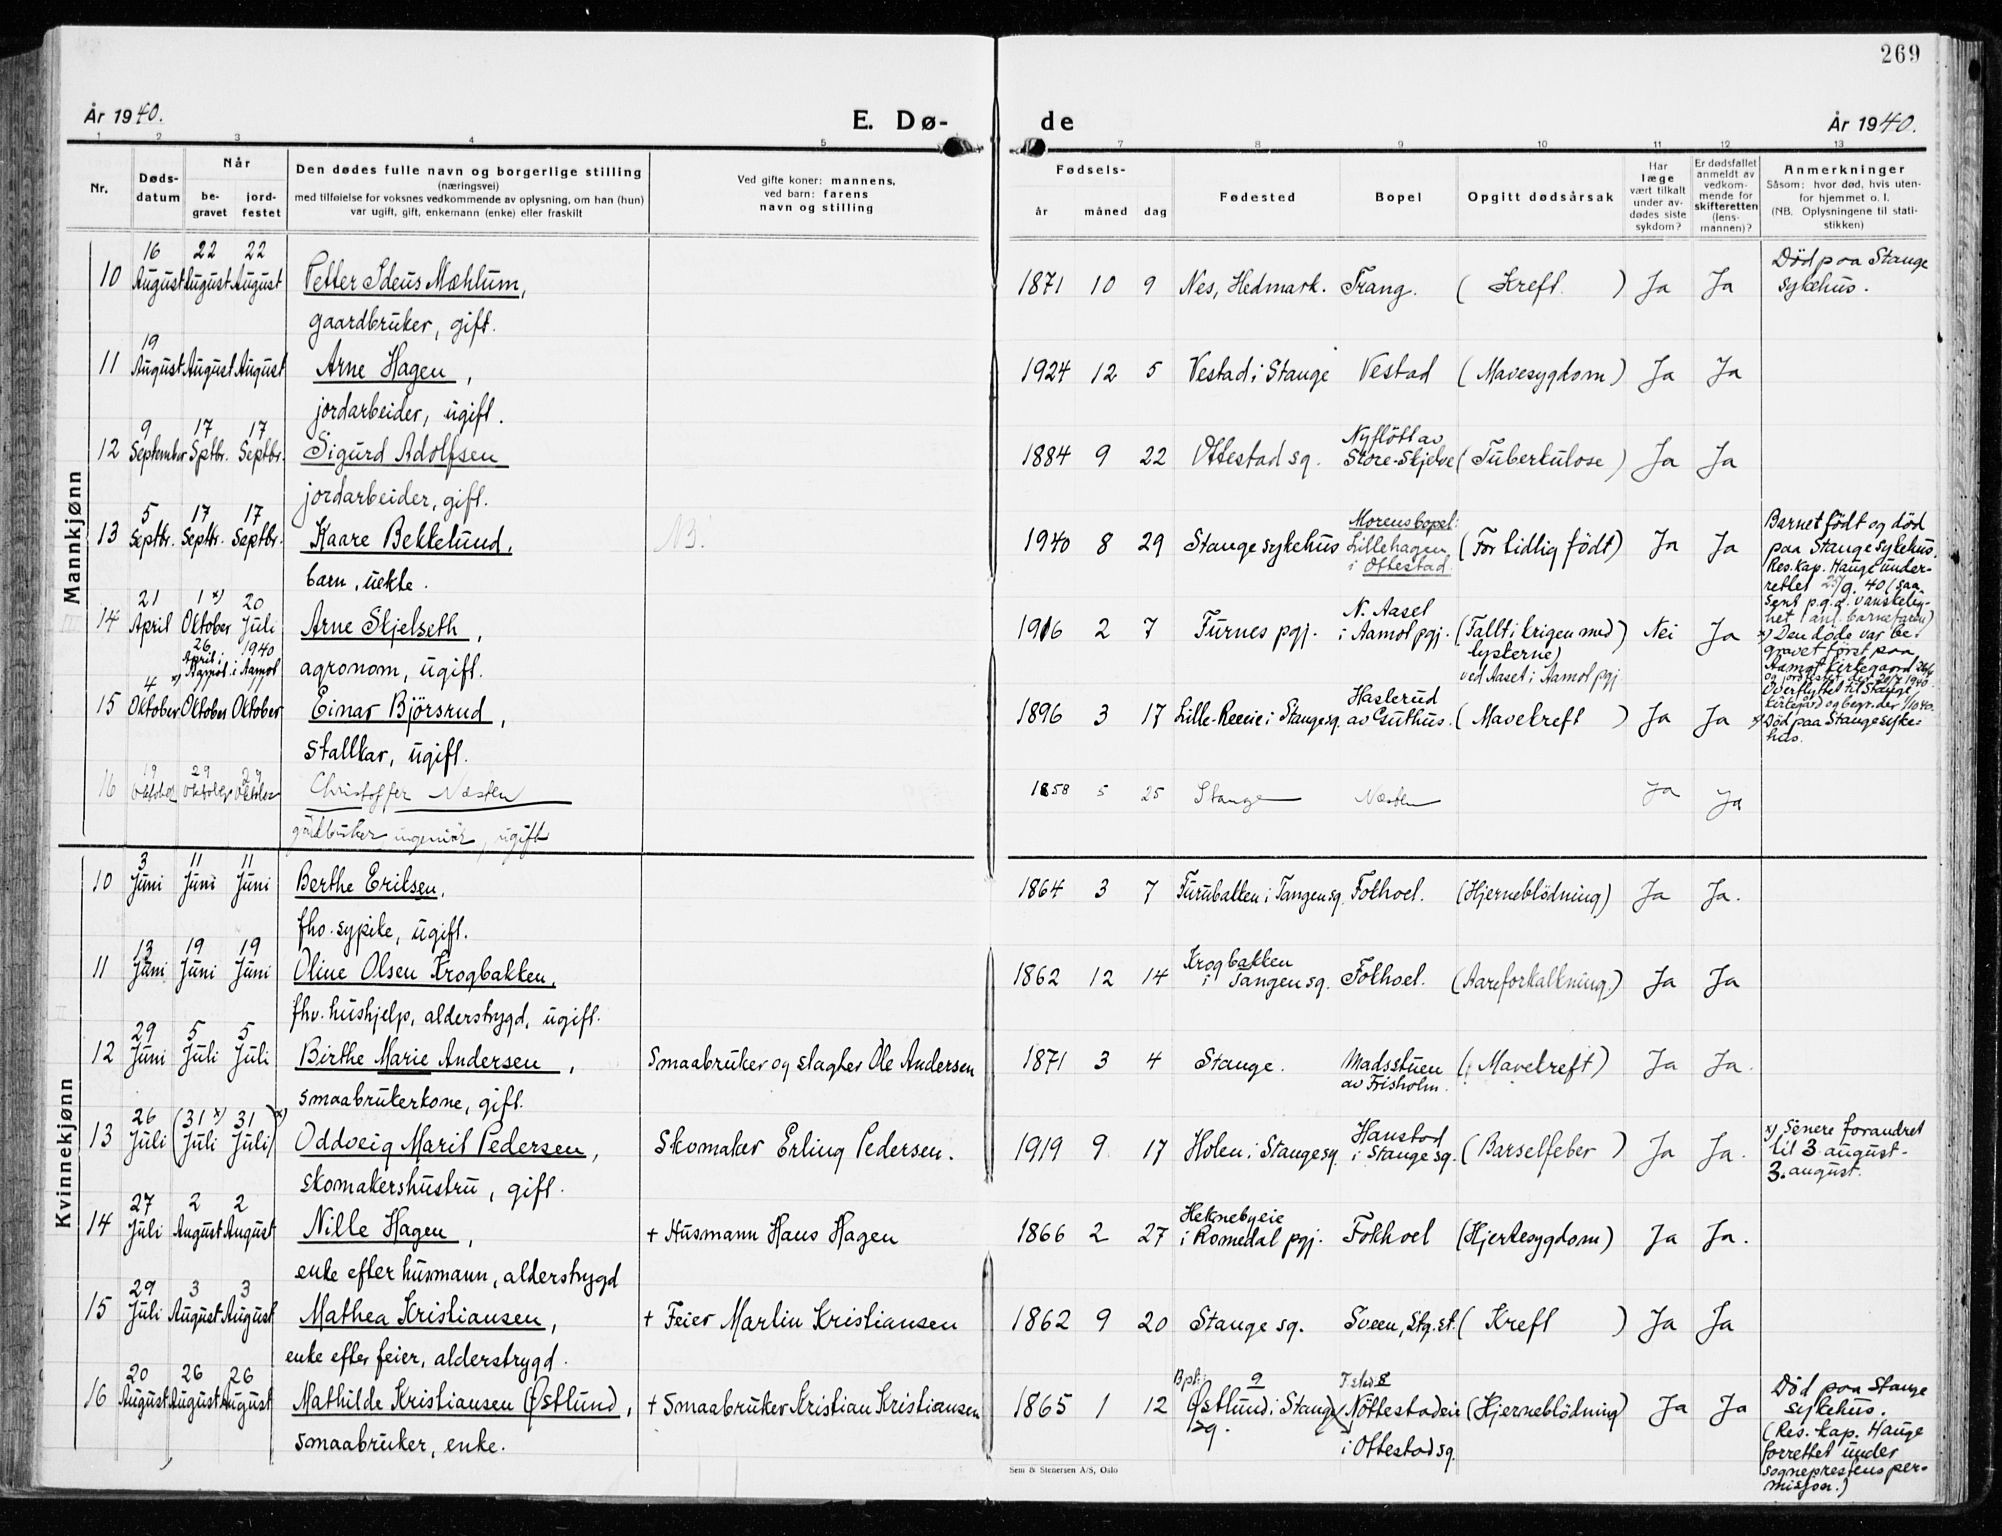 269
År 1940.
E. Dø-
de
År 1940.
1 2 3 4 5 7 8 9 10 11 12 13
Nr.
Døds-
datum
Når
be-
gravet
jord-
festet
Den dødes fulle navn og borgerlige stilling
(næringsvei)
med tilføielse for voksnes vedkommende av oplysning, om han (hun)
var ugift, gift, enkemann (enke) eller fraskilt
Ved gifte koner: mannens,
ved barn: farens
navn og stilling
Fødsels-
år måned dag
Fødested
Bopel
Opgitt dødsårsak
Har
læge
vært tilkalt
under av-
dødes siste
sykdom?
Er dødsfallet
anmeldt av
vedkom-
mende for
skifteretten
(lens-
mannen)?
Anmerkninger
Såsom: hvor død, hvis uten-
for hjemmet o. l.
(NB. Oplysningene til stati-
stikken)
Mannkjønn
16 22 22
10 August August August Petter Ideus Mæhlum, 1871 10 9 Nes, Hedmark. Trang. ( Kreft ) Ja Ja
gaardbruker, gift.
Død paa Stange
sykehus.
19
11 August August August Arne Hagen, 1924 12 5 Vestad i Stange Vestad (Mavesygdom) Ja Ja
jordarbeider, ugift.
9 17 17
12 September Sptbr. Septbr. Sigurd Adolfsen 1884 9 22 Ottestad sq. Nyflött av
Store-Skjelve (Tuberkulose) Ja Ja
jordarbeider, gift.
5 17 17
13 Septbr. Septbr. Septbr. Kaare Bekkelund, N3. 1940 8 29 Stange sykehus Morens bopel:
Lillehagen
i Ottestad. (For tidlig født) Ja Ja
barn, uekte.
Barnet født og død
paa Stange sykehus.
Res. kap. Hauge under-
rettet 25/9. 40 (saa
sent p.g.a. vanskelig-
het anl. barnefaren)
21 1 x) 20
14 April Oktober Juli Arne Skjelseth, 1916 2 7 Furnes pgj. N. Aasel
i Aamot pgj. (Fallt i krigen med
tyskerne)
ved Aaset i Aamot pgj Nei Ja
26. 1940
April i
x) Aamot i Aamot agronom, ugift.
x) Den døde var be-
gravet først paa
Aamot kirkegaard 26/4
og jordfestet der 20/7 1940.
Overflyttet til Stange
kirkegård og begr. der 1/10 40.
4
15 Oktober Oktober Oktober Einar Björsrud, 1896 3 17 Lille-Reeeie i Stange sq. Hasterud
av Guthus. (Mavekreft) Ja Ja
x) Død paa Stange syke-
hus.
stallkar, ugift.
19 29 29
16 Oktober Oktober Oktober Christoffer Næsten 1858 5 25 Stange Næsten Ja Ja
gårdbruker, ingeniör, ugift
Kvinnekjønn
3 11 11
10 Juni Juni Juni Berthe Eriksen, 1864 3 7 Furubakken i Tangen sq. Fokhoel. (Hjerneblödning) Ja Ja.
fhv. sypike, ugift.
13 19 19
11 Juni Juni Juni Oline Olsen Krogbakken, 1862 12 14 Krogbakken
i Tangen sq. Fokhoel. (Aareforkalkning.) Ja Ja
fhv. hushjelp, alderstrygd, ugift.
29 5 5
12 Juni Juli Juli Birthe Marie Andersen, Smaabruker og slagter Ole Andersen 1871 3 4 Stange. Madsstuen
av Frisholm. (Mavekreft) Ja Ja.
smaabrukerkone, gift.
26 (31 x) 31 x)
13 Juli (Juli Juli) Oddveig Marit Pedersen, Skomaker Erling Pedersen. 1919 9 17 Holen i Stange sq. Hanstad
i Stange sq. (Barselfeber) Ja Ja.
skomakershustru, gift.
x) Senere forandret
til 3 august -
3. august.
27 2 2
14 Juli August August Nille Hagen, + Husmann Hans Hagen 1866 2 27 Heknebyeie
i Romedal pgj. Fokhoel (Hjertesygdom) Ja Ja.
enke efter husmann, alderstrygd
29 3 3
15 Juli August August Mathea Kristiansen, + Feier Martin Kristiansen 1862 9 20 Stange sq. Sveen, Stg. st. ( Kreft ) Ja Ja
enke efter feier, alderstrygd.
20 26 26
16 August August August Mathilde Kristiansen Østlund, + Smaabruker Kristian Kristiansen 1865 1 12 Østlund i Stange
sq. Nöttestadeie
i Ottestad sq. (Hjerneblödning) Ja Ja
smaabruker, enke.
Død paa Stange
sykehus.
(Res. kap. Hauge
forrettet under
sogneprestens per-
misjon.)
Sem & Stenersen A/S, Oslo